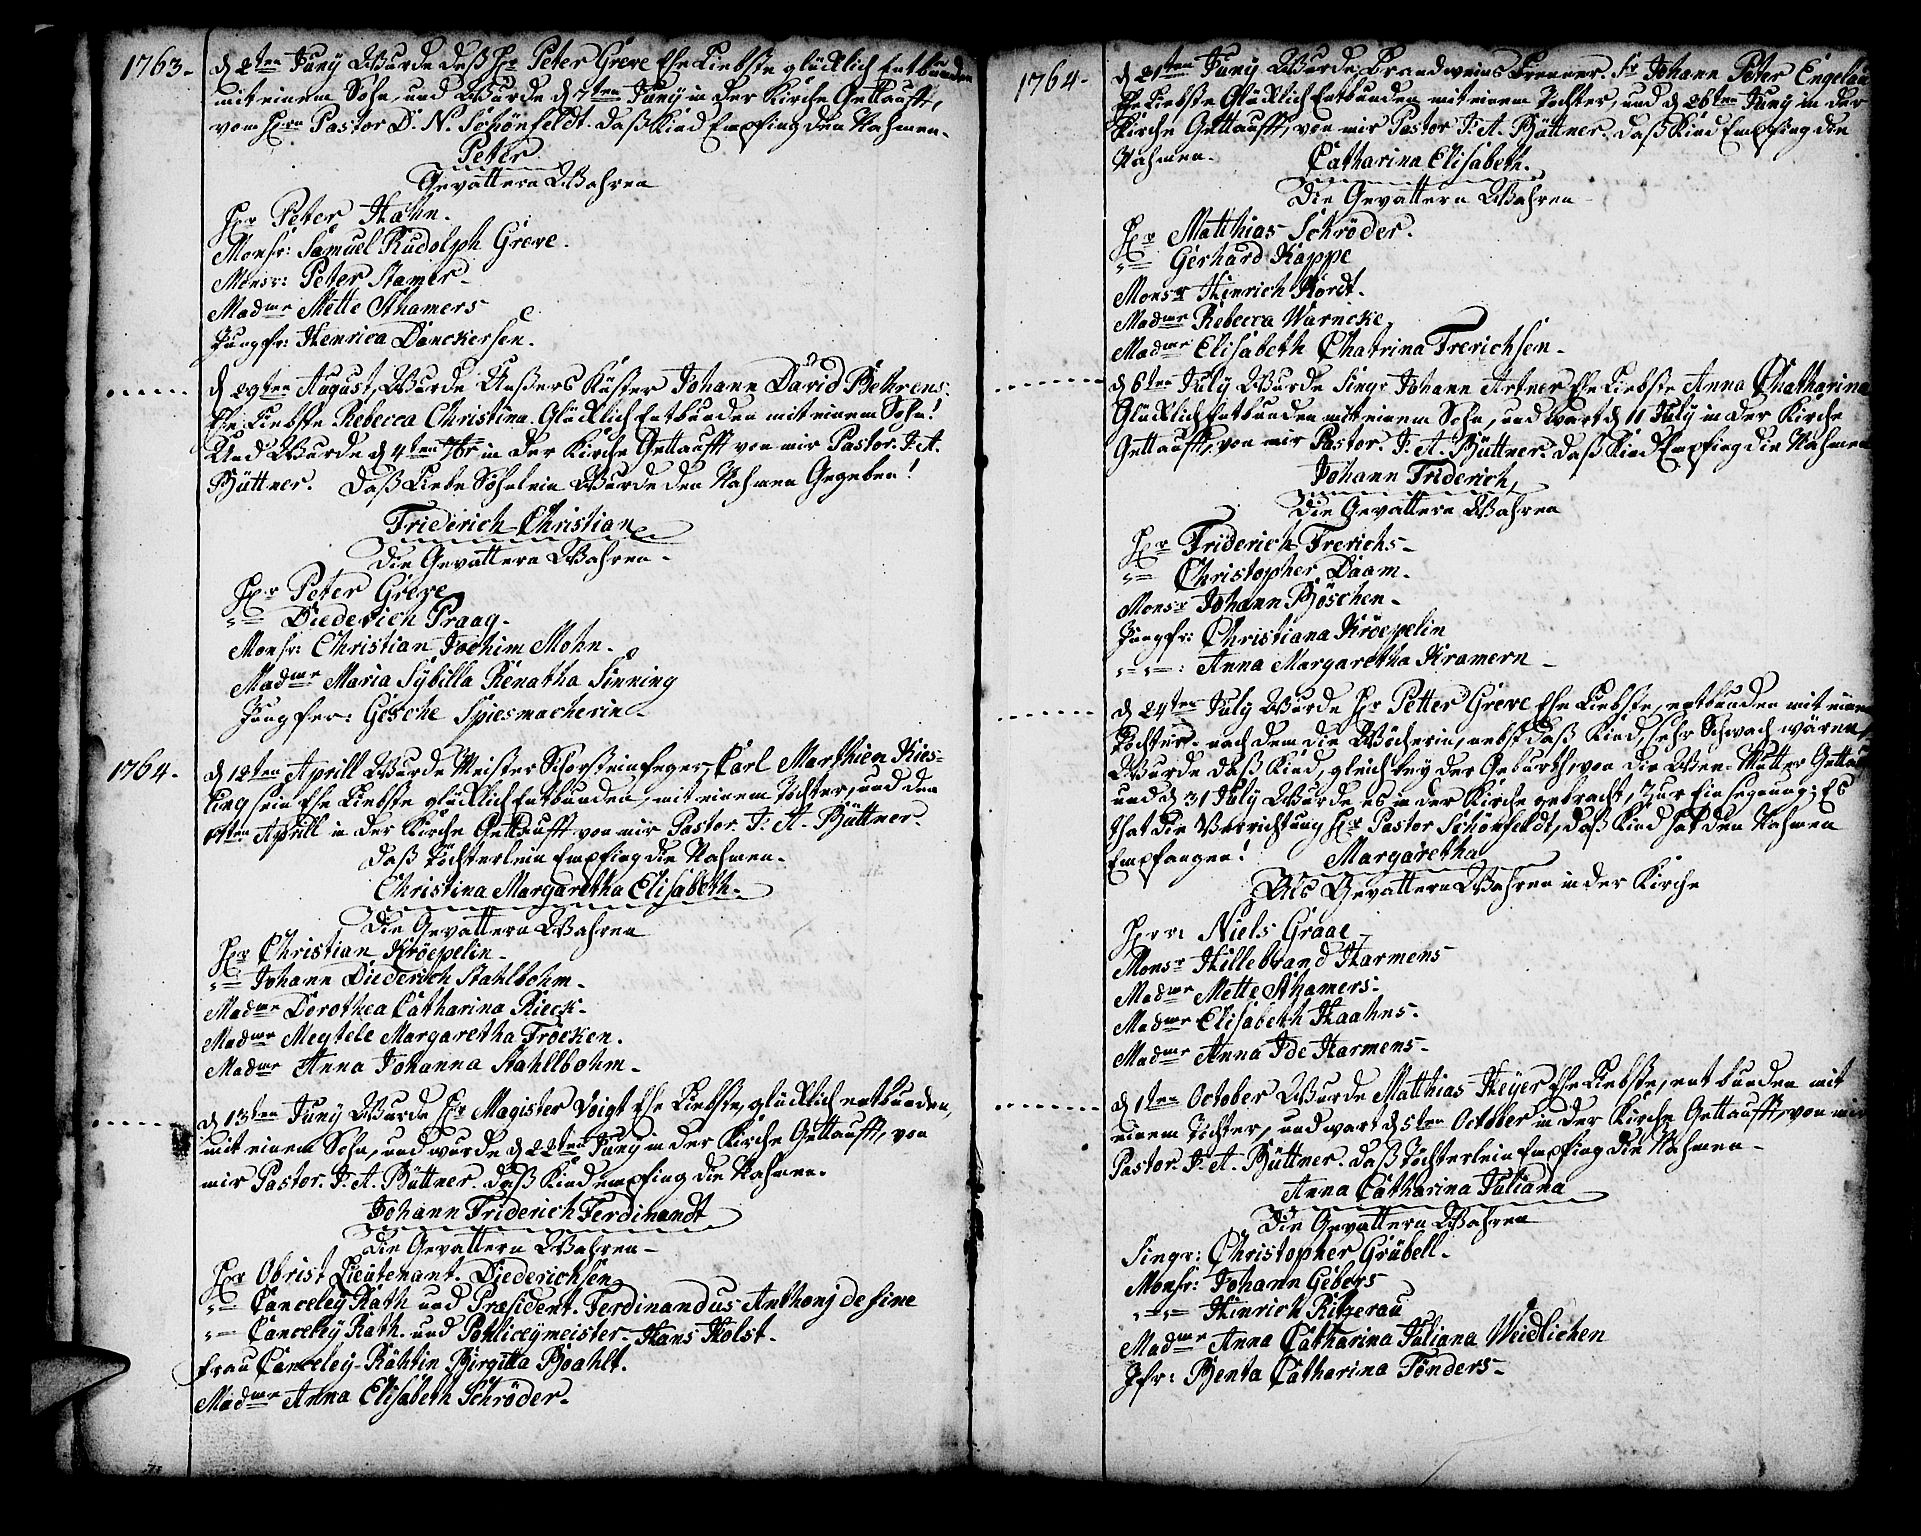 1763.
d 2ten Juny Wurde deß Hr Peter Greve Ehe Liebste glücklich Entbunden
mit einem Sohn, und Wurde d 7ten Juny in der Kirche Gettaufft,
vom Hrn Pastor D. N. Schönfeldt. daß Kind Empfing den Nahmen.
Peter
Gevattern Wahren
Hr Peter Hahn.
Monsr: Samuel Rudolph Greve.
Monsr: Peter Stamer.
Madme Mette Sthamers
Jungfr: Henrica Danckersen.
d 29ten August, Wurde Unßers Küster Johann David Behrens.
Ehe Liebste Rebecca Christina. Glücklich Entbunden mit einem Sohn!
Und Wurde d 4ten 7br in der Kirche Gettaufft von mir Pastor. J. A.
Büttner. Daß Liebe Söhnlein Wurde den Nahmen Gegeben!
Friderich Christian
die Gevattern Wahren.
Hr Peter Greve
"= Diederich Praag.
Monsr: Christian Jochim Mohn.
Madme Maria Sybilla Renatha Sinning
Jungfer: Gesche Spiesmacherin.
1764.
d 12ten Aprill Wurde Meister Schorsteinfeger, Carl Marthien Kies-
ling sein Ehe Liebste glücklich Entbunden, mit einem Töchter, und den
ten Aprill in der Kirche Gettaufft von mir Pastor. J. A. Büttner.
daß Töchterlein Empfing die Nahmen.
Christina Margaretha Elisabeth.
die Gevattern Wahren
Hr Christian Kröepelin.
"= Johann Diederich Stahlbohm.
Madme Dorothea Catharina Rieck.
Madme Megtele Margaretha Fröcken.
Madme Anna Johanna Stahllbohm.
d 13ten Juny Wurde Hr Magister Voigt Ehe Liebste, glücklich entbunden,
mit einem Sohn, und wurde d 22ten Juny in der Kirche Gettaufft, von
mir Pastor. J. A. Büttner. daß Kind empfing die Nahmen.
Johann Friderich Ferdinandt
die Gevattern Wahren.
Hr Obrist Lieutenant. Diederichsen
"= Canceley Rath und Præsident. Ferdinandus Anthonj de fine
"= Canceley Rath. und Pohliceymeister. Hans Holst.
Frau Canceley-Räthin Birgitta Boahlt.
Madme Anna Elisabeth Schröder.
1764.
d 21ten Juny Wurde, Brandweins Brenner. Sr Johann Peter Engelau
Ehe Liebste Glücklich Entbunden mit einem Töchter, und d 26ten Juny in der
Kirche Gettaufft, von mir Pastor J. A. Büttner. daß Kind Empfing die
Nahmen. Catharina Elisabeth.
die Gevattern Wahren
Hr Matthias Schröder.
"= Gerhard Kappe
Monsr Hinrich Kordt.
Madme Rebecca Warncke,
Madme Elisabeth Chatrina Frerichsen.
d 6ten July Wurde Singr Johann Artner Ehe Liebste Anna Chatharina
Glücklich Entbunden mit einem Sohn, und wart d 11 July in der Kirche
Gettaufft, von mir Pastor. J. A. Büttner. daß Kind Empfing die Nahmen
Johann Friderich,
die Gevattern Wahren
Hr Friderich Frerichs.
"= Christopher Daam.
Monsr Johann Böschen.
Jungfr: Christiana Kröepelin
"="=: Anna Margaretha Kramern.
d 24ten July Wurde Hr Petter Greve Ehe Liebste, entbunden mit einem
Töchter. nach dem die Wöcherin, nebst daß Kind, sehr Schwach wären,
Wurde daß Kind, gleich bey der Geburth, von die Wen-Mutter Gettaufft
und d 31 July Wurde es in der Kirche gebracht, zur Einsegnung; Es
that die Verrichtung Hr Pastor Schönfeldt, daß Kind hat den Nahmen
Empfangen! Margaretha
Als Gevattern Wahren in der Kirche
Herr: Niels Graae
Monsr Hillebrand Harmens
Madme Mette Sthamers.
Madme Elisabeth Haahns.
Madme Anna Ide Harmens.
d 1ten October Wurde Matthias Heyer Ehe Liebste, entbunden mit
einem Töchter, und wart d 5ten October in der Kirche Gettaufft, von mir
Pastor. J. A. Büttner. daß Töchterlein Empfing die Nahmen.
Anna Catharina Juliana
die Gevattern Wahren
Singr: Christopher Grübell.
Monsr: Johann Gebers
"="= Hinrich Ritzerau
Madme Anna Catharina Juliana Weidlichen
Jfr: Benta Catharina Tønders.